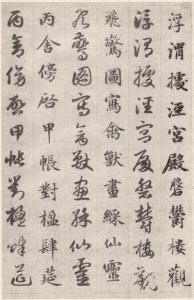 浮渭據涇宮殿盤鬱樓觀
浮渭據涇宮殿盤鬱樓觀
飛驚圖寫禽獸畫綵仙靈
飛驚圖寫禽獸畫綵仙靈
丙舍傍啓甲帳對楹肆筵
丙舍傍啓甲帳對楹肆筵